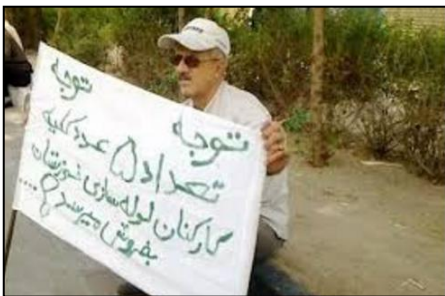 توجه توجه
تعداد ۵ عدد کلیه
کارکنان لوله سازی خوزستان
بفروش میرسد ....